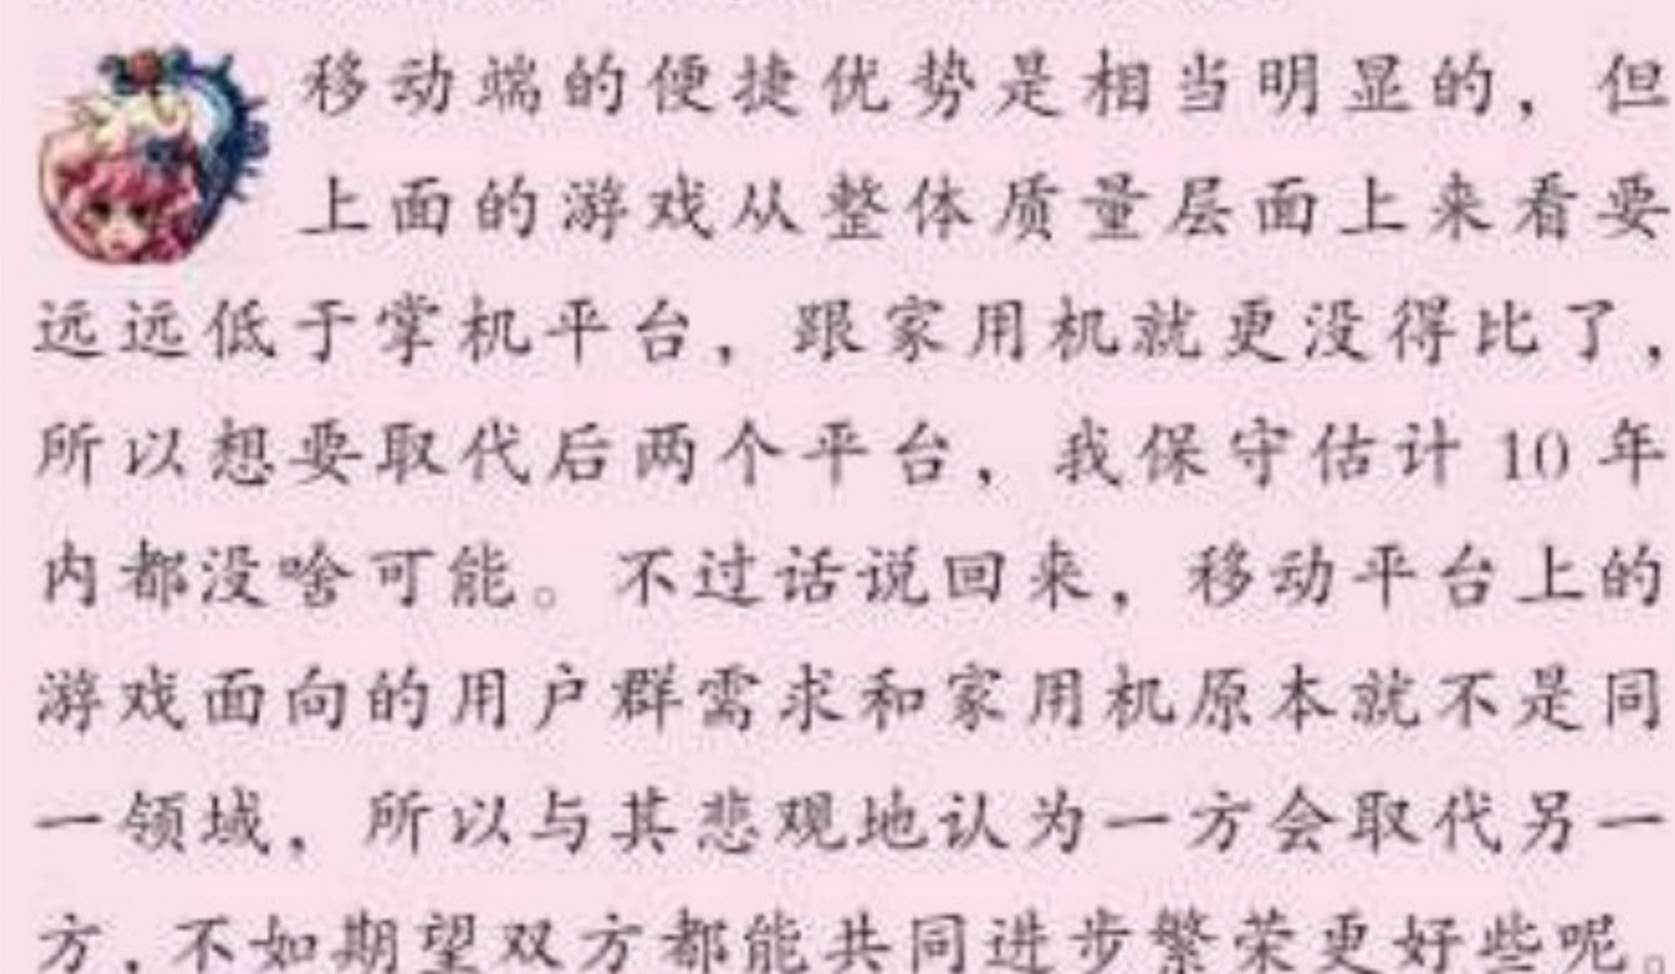 移动端的便捷优势是相当明显的，但
上面的游戏从整体质量层面上来看要
远远低于掌机平台，跟家用机就更没得比了，
所以想要取代后两个平台，我保守估计 10 年
内都没啥可能。不过话说回来，移动平台上的
游戏面向的用户群需求和家用机原本就不是同
一领域，所以与其悲观地认为一方会取代另一
方，不如期望双方都能共同进步繁荣更好些呢。